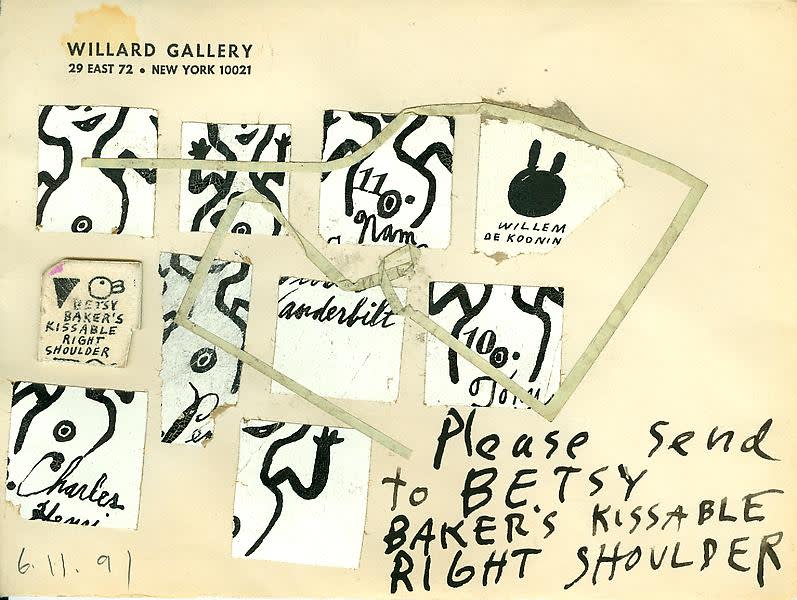 WILLARD GALLERY
29 EAST 72 • NEW YORK 10021
11
Nam
WILLEM
DE KOONIN
BETSY
BAKER'S
KISSABLE
RIGHT
SHOULDER
Pe
anderbilt
10
John
Charles
Henri
Please send
to BETSY
BAKER'S KISSABLE
RIGHT SHOULDER
6.11.91